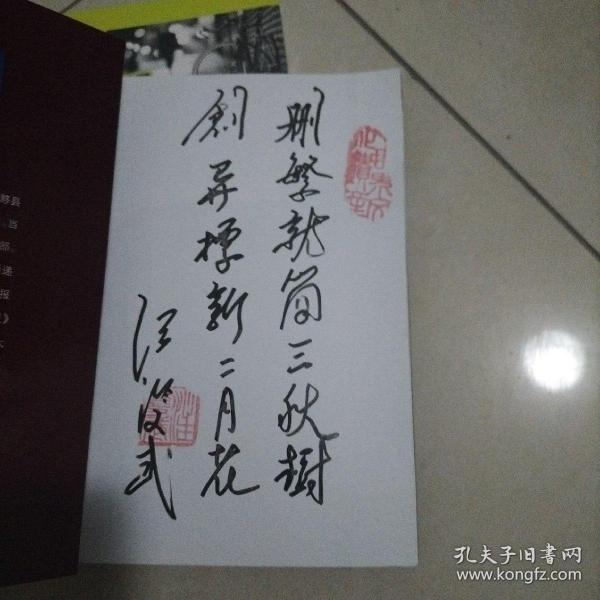 删繁就简三秋树
创异标新二月花
黟县
、当
部、
递
报
》
孔夫子旧书网
www.kongfz.com